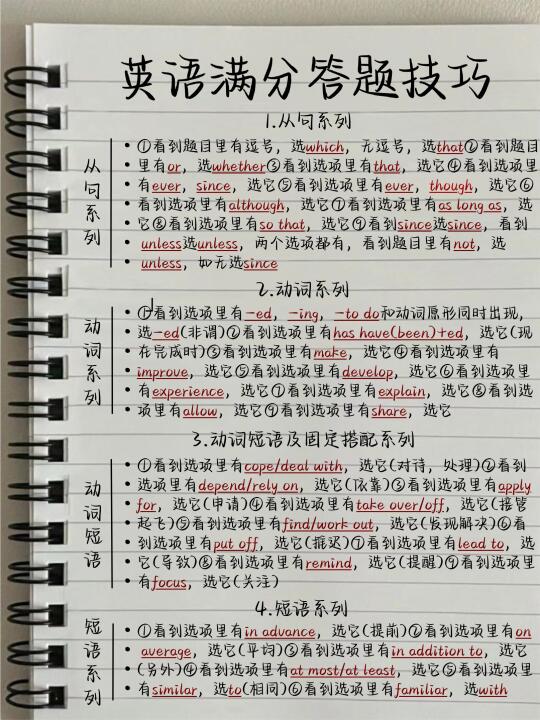 英语满分答题技巧
1.从句系列
从句系列
• ①看到题目里有逗号，选which，无逗号，选that②看到题目
• 里有or，选whether③看到选项里有that，选它④看到选项里
• 有ever，since，选它⑤看到选项里有ever，though，选它⑥
• 看到选项里有although，选它⑦看到选项里有as long as，选
• 它⑧看到选项里有so that，选它⑨看到since选since，看到
• unless选unless，两个选项都有，看到题目里有not，选
• unless，如无选since
2.动词系列
动词系列
• ①看到选项里有-ed，-ing，-to do和动词原形同时出现，
• 选-ed(非谓)②看到选项里有has have(been)+ed，选它(现
• 在完成时)③看到选项里有make，选它④看到选项里有
• improve，选它⑤看到选项里有develop，选它⑥看到选项里
• 有experience，选它⑦看到选项里有explain，选它⑧看到选
• 项里有allow，选它⑨看到选项里有share，选它
3.动词短语及固定搭配系列
动词短语
• ①看到选项里有cope/deal with，选它(对待，处理)②看到
• 选项里有depend/rely on，选它(依靠)③看到选项里有apply
• for，选它(申请)④看到选项里有take over/off，选它(接管
• 起飞)⑤看到选项里有find/work out，选它(发现解决)⑥看
• 到选项里有put off，选它(推迟)⑦看到选项里有lead to，选
• 它(导致)⑧看到选项里有remind，选它(提醒)⑨看到选项里
• 有focus，选它(关注)
4.短语系列
短语系列
• ①看到选项里有in advance，选它(提前)②看到选项里有on
• average，选它(平均)③看到选项里有in addition to，选它
• (另外)④看到选项里有at most/at least，选它⑤看到选项里
• 有similar，选to(相同)⑥看到选项里有familiar，选with